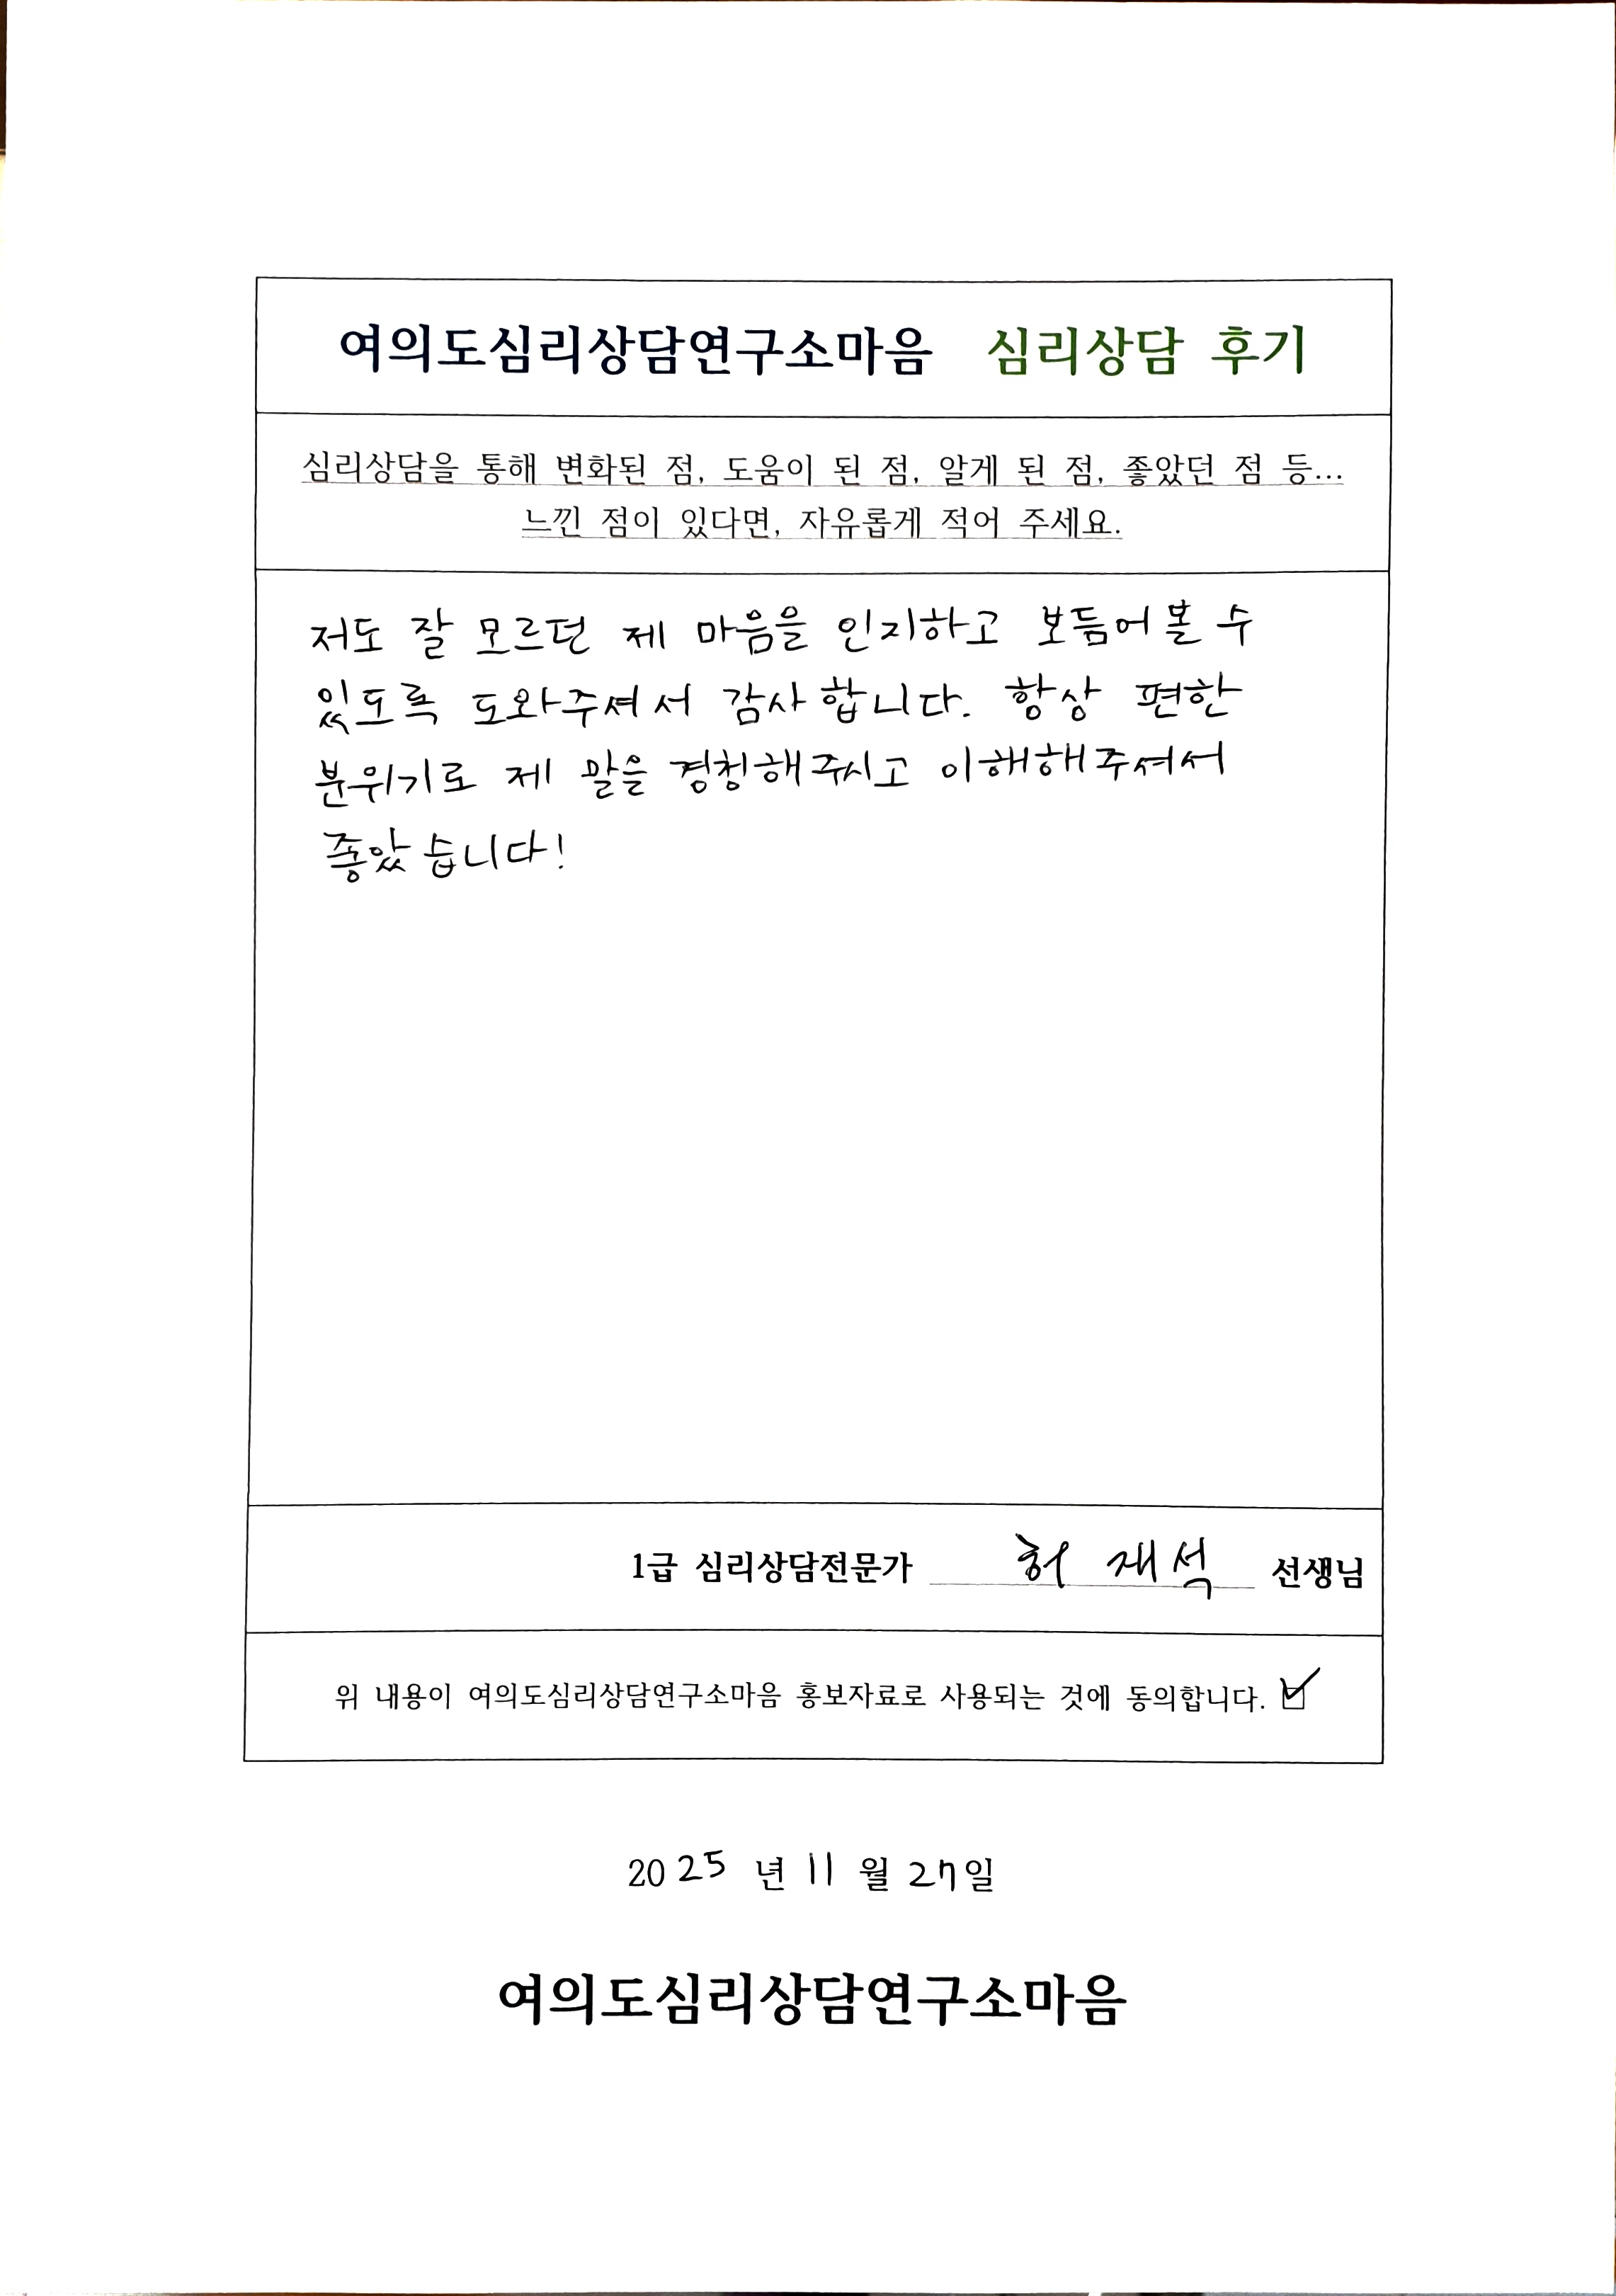 여의도심리상담연구소마음 심리상담 후기
심리상담을 통해 변화된 점, 도움이 된 점, 알게 된 점, 좋았던 점 등...
느낀 점이 있다면, 자유롭게 적어 주세요.
저도 잘 모르던 제 마음을 인지하고 보듬어볼 수
있도록 도와주셔서 감사합니다. 항상 편한
분위기로 제 말을 경청해주시고 이해해주셔서
좋았습니다!
1급 심리상담전문가 허재석 선생님
위 내용이 여의도심리상담연구소마음 홍보자료로 사용되는 것에 동의합니다. ☑
2025 년 11 월 27일
여의도심리상담연구소마음